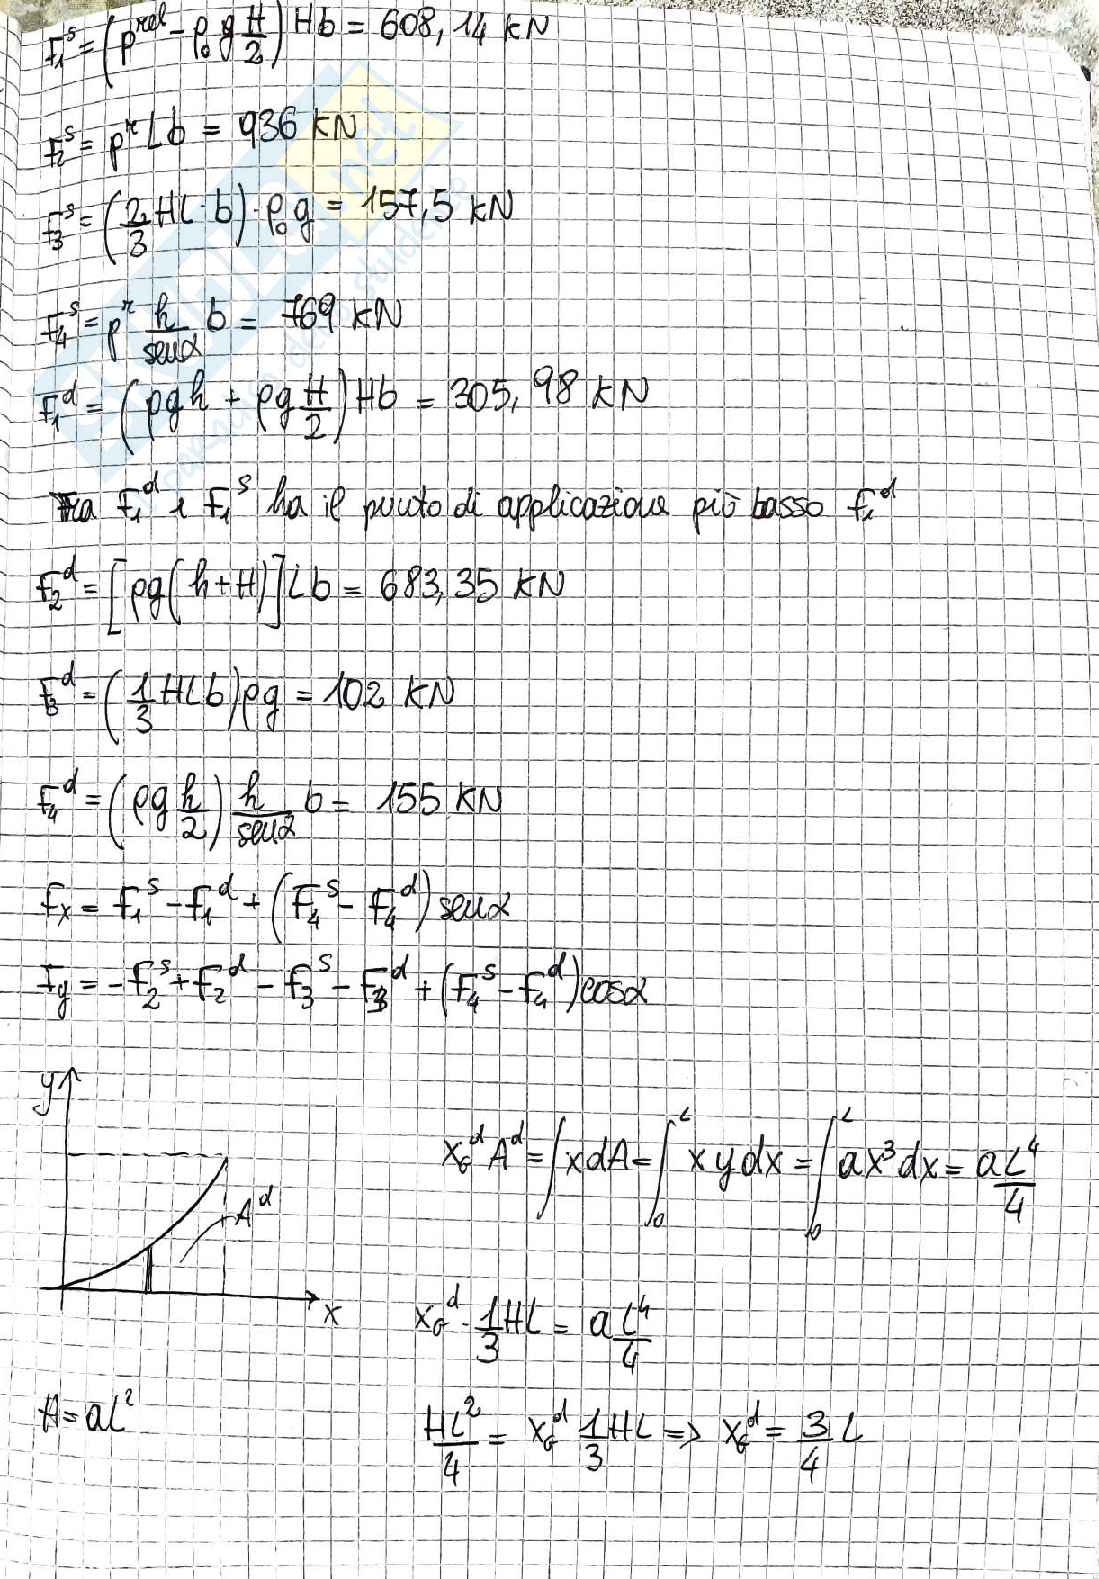 F₁ˢ = (pʳᵉˡ - ρ₀ g H/2) H b = 608,14 KN
F₂ˢ = pʳ L b = 936 KN
F₃ˢ = (2/3 H L · b) · ρ₀ g = 157,5 KN
F₄ˢ = pʳ h/senα b = 769 KN
F₁ᵈ = (ρ g h + ρ g H/2) H b = 305,98 KN
Tra F₁ᵈ e F₁ˢ ha il punto di applicazione più basso F₁ᵈ
F₂ᵈ = [ρ g (h + H)] L b = 683,35 KN
F₃ᵈ = (1/3 H L b) ρ g = 102 KN
F₄ᵈ = (ρ g h/2) h/senα b = 155 KN
Fx = F₁ˢ - F₁ᵈ + (F₄ˢ - F₄ᵈ) senα
Fy = - F₂ˢ + F₂ᵈ - F₃ˢ - F₃ᵈ + (F₄ˢ - F₄ᵈ) cosα
y
x_Gᵈ Aᵈ = ∫ x dA = ∫₀ᴸ x y dx = ∫₀ᴸ a x³ dx = a L⁴/4
Aᵈ
x
x_Gᵈ · 1/3 H L = a L⁴/4
H = a L²
H L²/4 = x_Gᵈ 1/3 H L => x_Gᵈ = 3/4 L